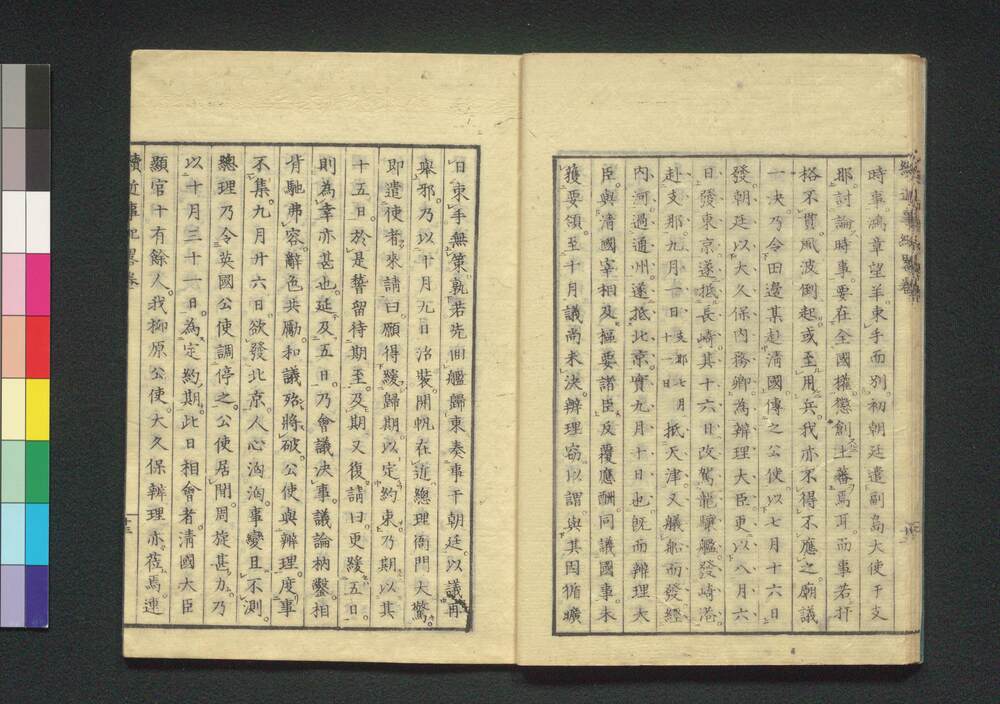 時事鴻章望羊。東手而別。初朝廷遣副島大使于支
那討論時事要在全國權懲創土蕃焉耳。而事若扞
挌不貫。風波倒起。或至用兵。我亦不得不應之。廟議
一决。乃令田邊某赴清國傳之公使。以七月十六日
發朝廷以大久保内務卿為辨理大臣。更以八月六
日發東京。遂抵長崎。其十六日改駕龍驤艦。發崎港。
赴支那。九月一日支那七月十一日抵天津。又艤船而發經
内河過通州。遂抵北京。實九月十日也。既而辨理大
臣與清國宰相及樞要諸臣反覆應酬。同議國事。未
獲要領。至十月議尚未決。辨理窃以謂與其因循曠
日束手無策孰若先回艦歸東奏事于朝廷。以議再
舉邪。乃以十月九日治裝。開帆在近。總理衙門大驚。
即遣使者來請曰。願得緩歸期。以定約束。乃期以其
十五日。於是暫留待期至。及期又復請曰。更緩五日。
則為幸亦甚也。延及五日。乃會議決事。議論枘鑿相
背馳弗容。辭色共勵。和議殆將破。公使與辨理。度事
不集。九月廿六日。欲發北京。人心洶洶。事變且不測。
總理乃令英國公使調停之。公使居間。周旋甚力。乃
以十月三十一日。為定約期。此日相會者。清國大臣
顯官十有餘人。我柳原公使。大久保辨理亦蒞焉。連
續近事紀畧卷
十三